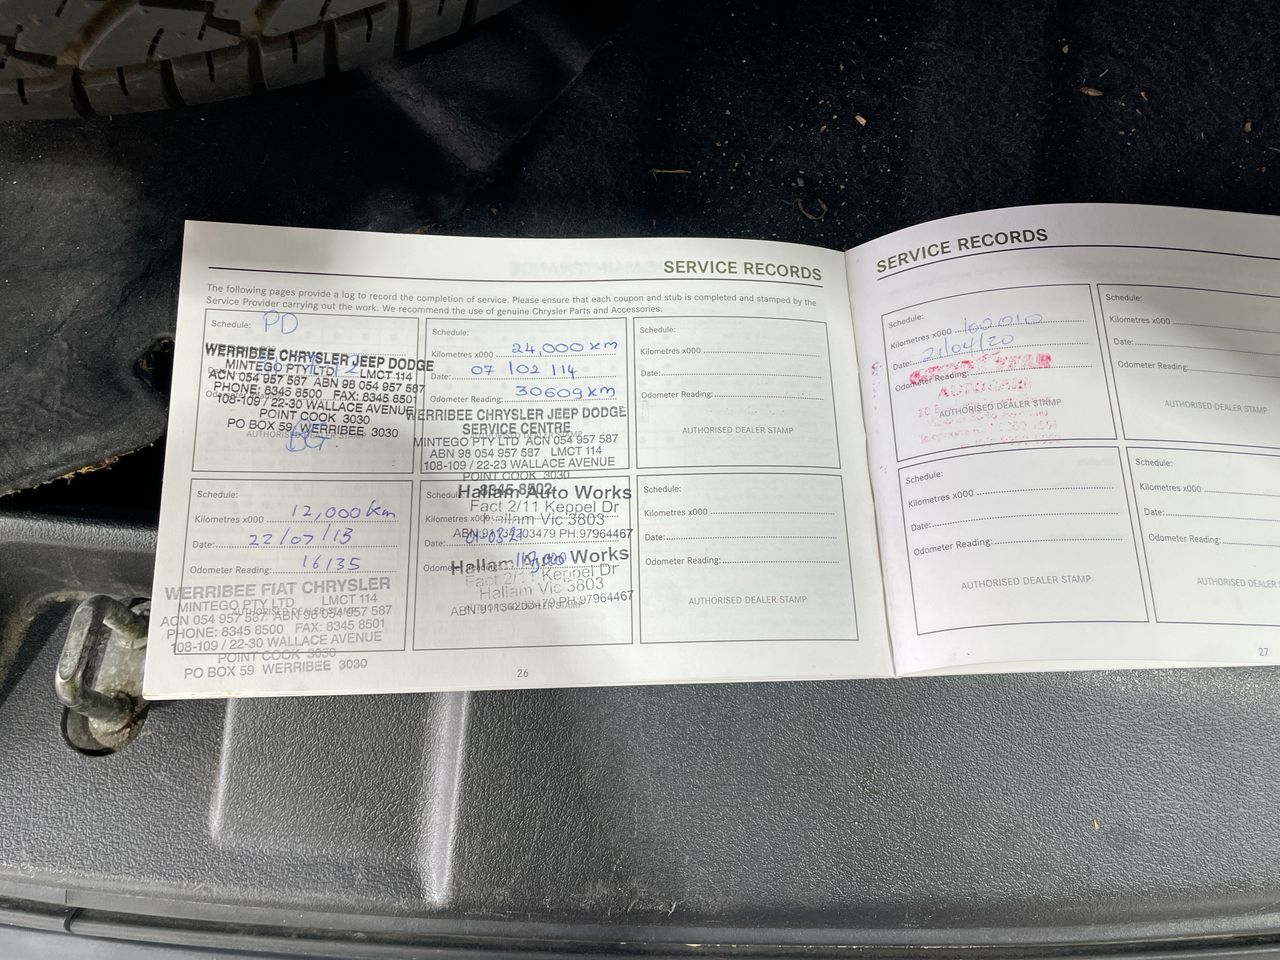 SERVICE RECORDS
The following pages provide a log to record the completion of service. Please ensure that each coupon and stub is completed and stamped by the
Service Provider carrying out the work. We recommend the use of genuine Chrysler Parts and Accessories.
Schedule: PD
WERRIBEE CHRYSLER JEEP DODGE
MINTEGO PTY LTD LMCT 114
ACN 054 957 587 ABN 98 054 957 587
PHONE: 8345 8500 FAX: 8345 8501
108-109 / 22-30 WALLACE AVENUE
POINT COOK 3030
PO BOX 59 WERRIBEE 3030
AUTHORISED DEALER STAMP
Schedule:
Kilometres x000 24,000 km
Date: 07/02/14
Odometer Reading: 30609km
WERRIBEE CHRYSLER JEEP DODGE
SERVICE CENTRE
MINTEGO PTY LTD ACN 054 957 587
ABN 98 054 957 587 LMCT 114
108-109 / 22-23 WALLACE AVENUE
POINT COOK 3030
8345 8502
Schedule:
Kilometres x000
Date:
Odometer Reading:
AUTHORISED DEALER STAMP
Schedule:
Kilometres x000 12,000 km
Date: 22/07/13
Odometer Reading: 16135
WERRIBEE FIAT CHRYSLER
AUTHORISED DEALER STAMP
MINTEGO PTY LTD LMCT 114
ACN 054 957 587 ABN 98 054 957 587
PHONE: 8345 8500 FAX: 8345 8501
108-109 / 22-30 WALLACE AVENUE
POINT COOK 3030
PO BOX 59 WERRIBEE 3030
Schedule:
Hallam Auto Works
Fact 2/11 Keppel Dr
Kilometres x000
Hallam Vic 3803
PH:97964467
Date:
Hallam Auto Works
Odometer Reading:
Fact 2/11 Keppel Dr
Hallam Vic 3803
PH:97964467
AUTHORISED DEALER STAMP
Schedule:
Kilometres x000
Date:
Odometer Reading:
AUTHORISED DEALER STAMP
26
SERVICE RECORDS
Schedule:
Kilometres x000 100010
Date: 21/04/20
Odometer Reading:
AUTHORISED DEALER STAMP
Schedule:
Kilometres x000
Date:
Odometer Reading:
AUTHORISED DEALER STAMP
Schedule:
Kilometres x000
Date:
Odometer Reading:
AUTHORISED DEALER STAMP
Schedule:
Kilometres x000
Date:
Odometer Reading:
AUTHORISED DEALER STAMP
27